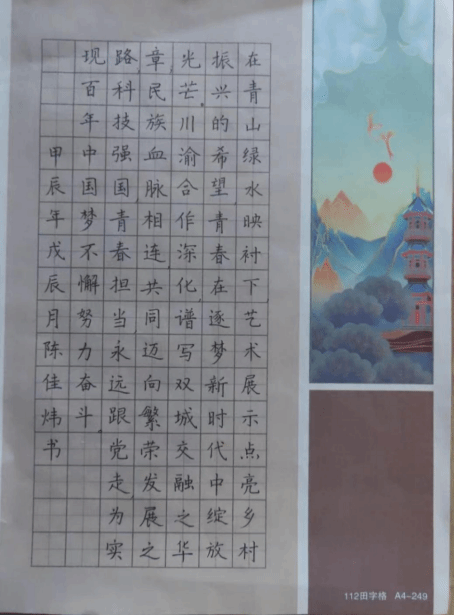 在青山绿水映衬下艺术展示点亮乡村
振兴的希望,青春在逐梦新时代中绽放
光芒。川渝合作深化,谱写双城交融之华
章,民族血脉相连共同迈向繁荣发展之
路,科技强国,青春担当,永远跟党走,为实
现百年中国梦不懈努力奋斗。
甲辰年戊辰月陈佳炜书
112田字格 A4-249